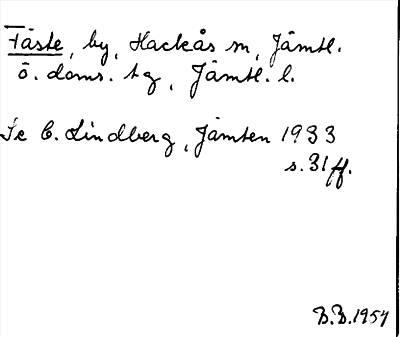 Fäste, by, Hackås sn, Jämtl.
ö. doms. tg, Jämtl. l.
Se C. Lindberg, Jämten 1933
s. 31 ff.
B.B. 1954